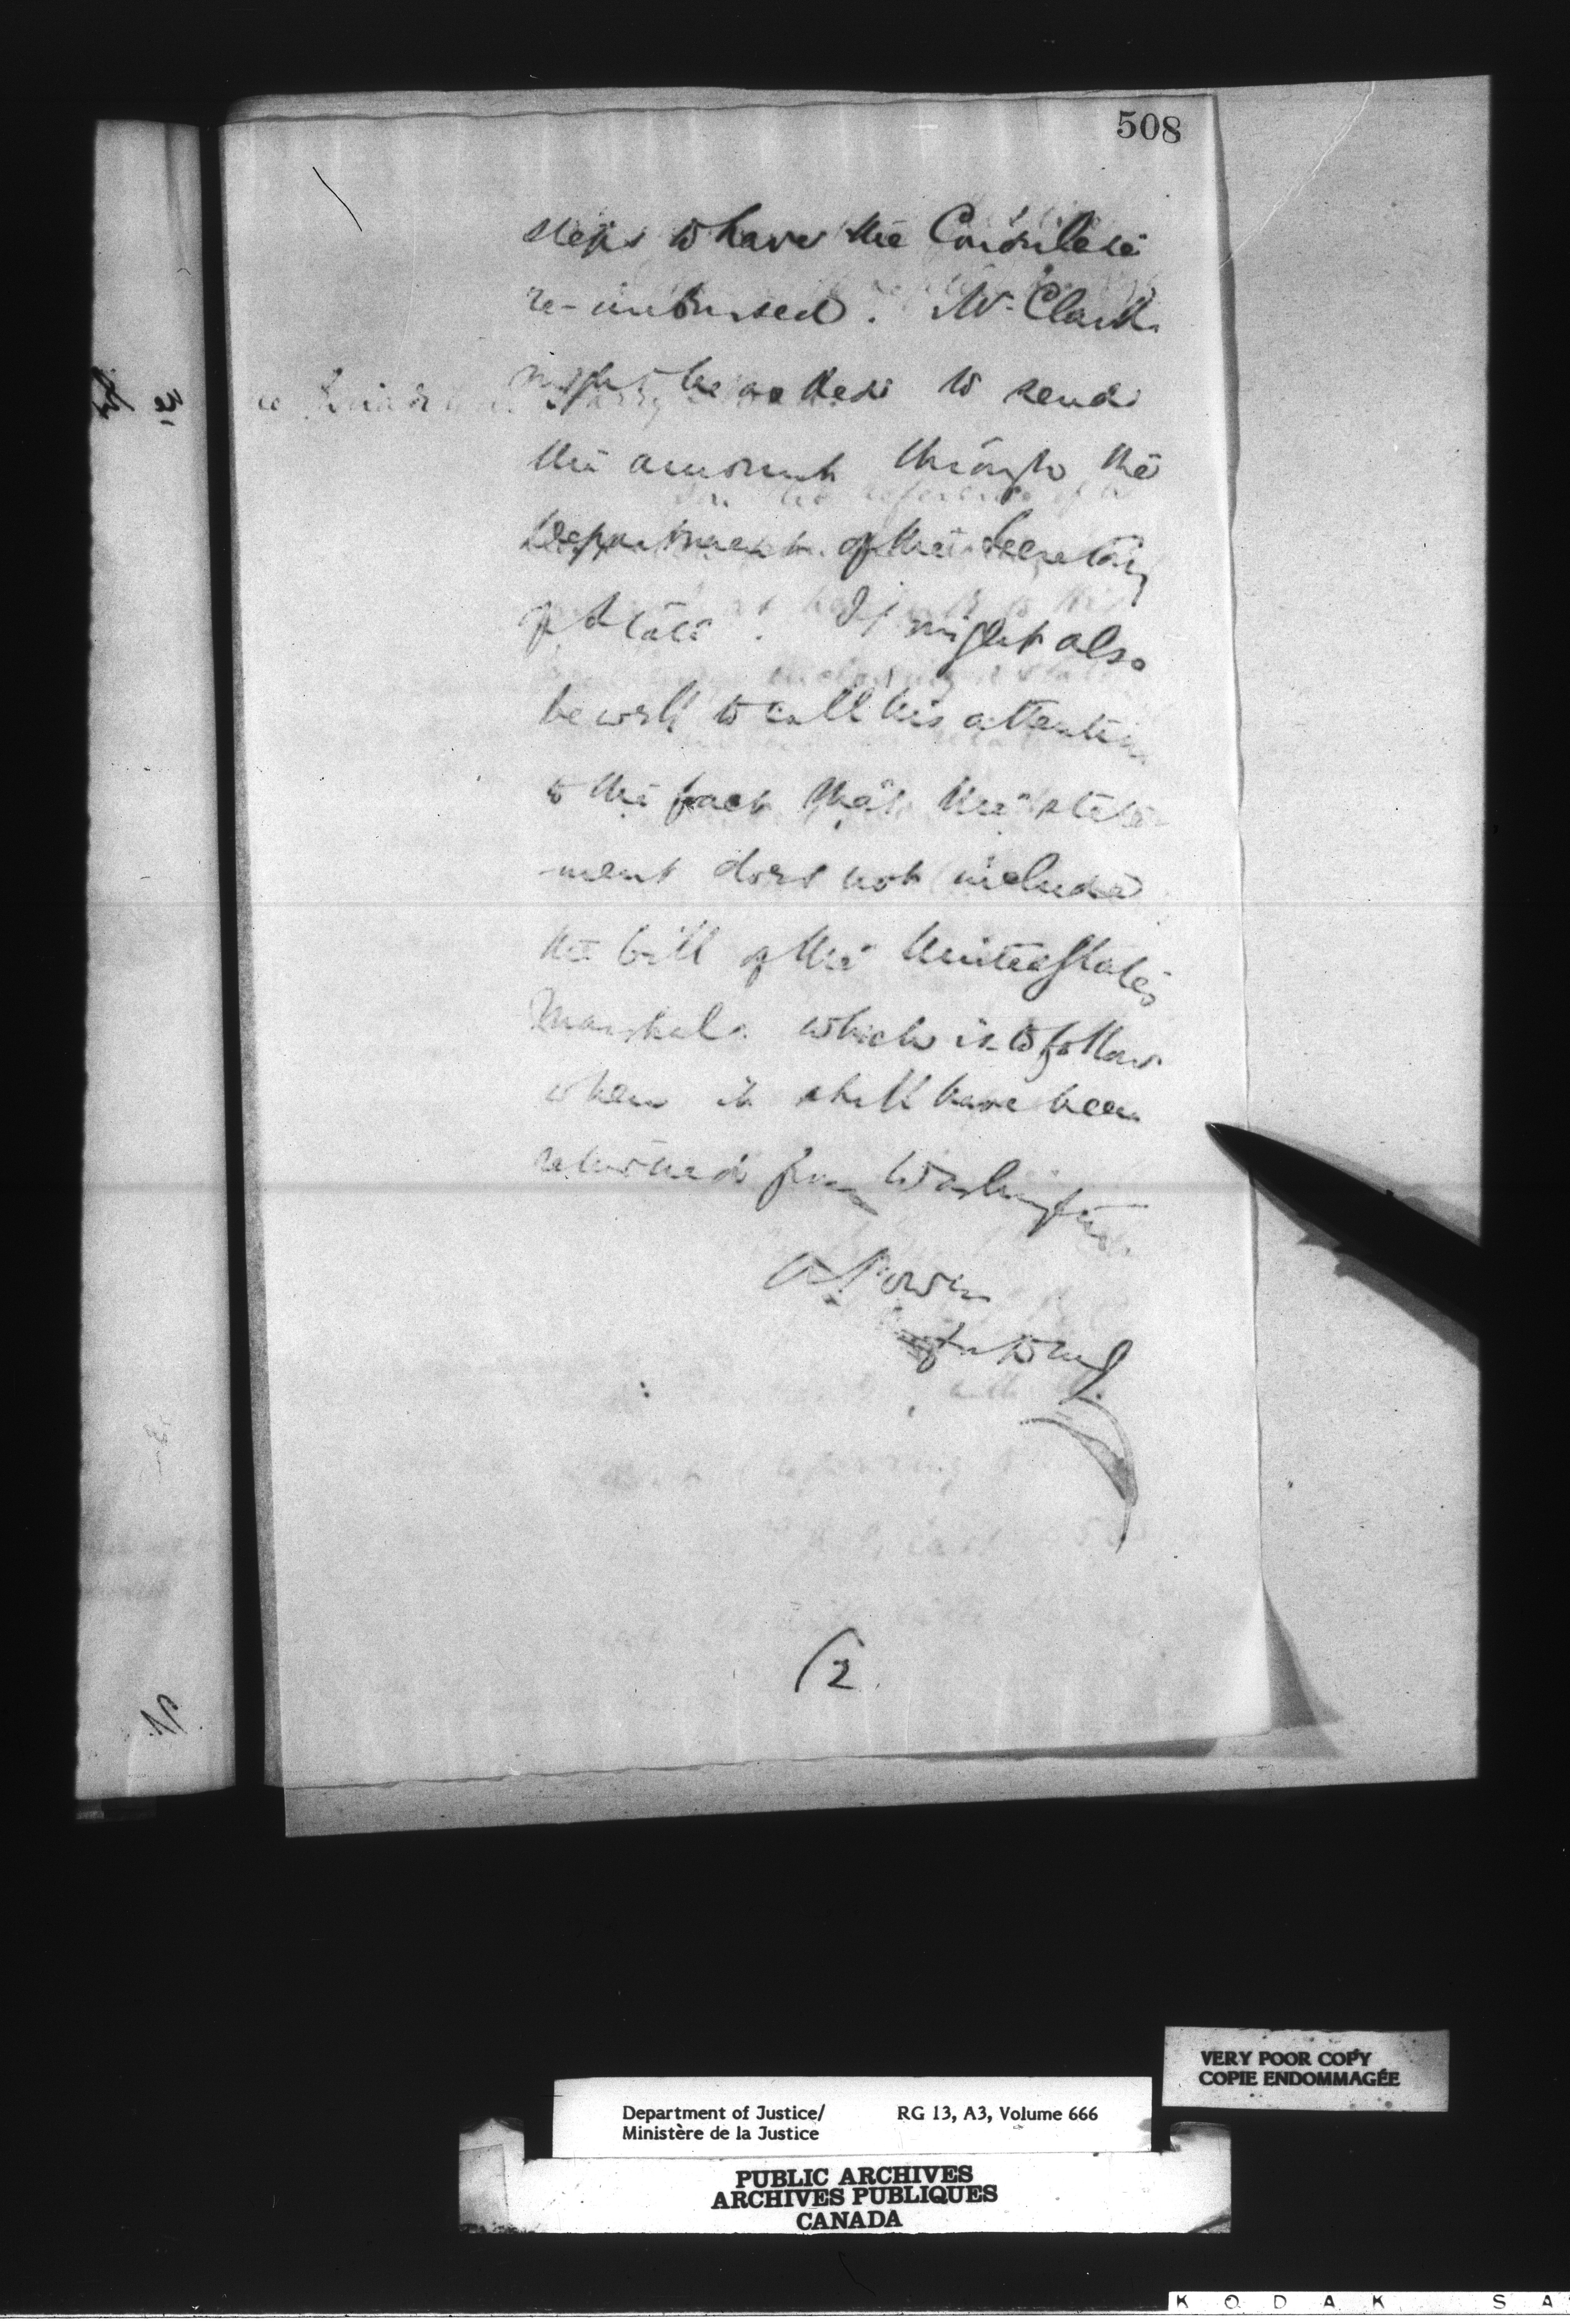 508
steps to have the Consulate
re-imbursed. Mr. Clark
might be asked to send
the amount through the
Department of the Secretary
of State. It might also
be well to call his attention
to the fact that the state
-ment does not include
the bill of the United States
Marshal which is to follow
when it shall have been
returned from Washington.
A Power
(2
VERY POOR COPY
COPIE ENDOMMAGÉE
Department of Justice/ RG 13, A3, Volume 666
Ministère de la Justice
PUBLIC ARCHIVES
ARCHIVES PUBLIQUES
CANADA
K O D A K S A